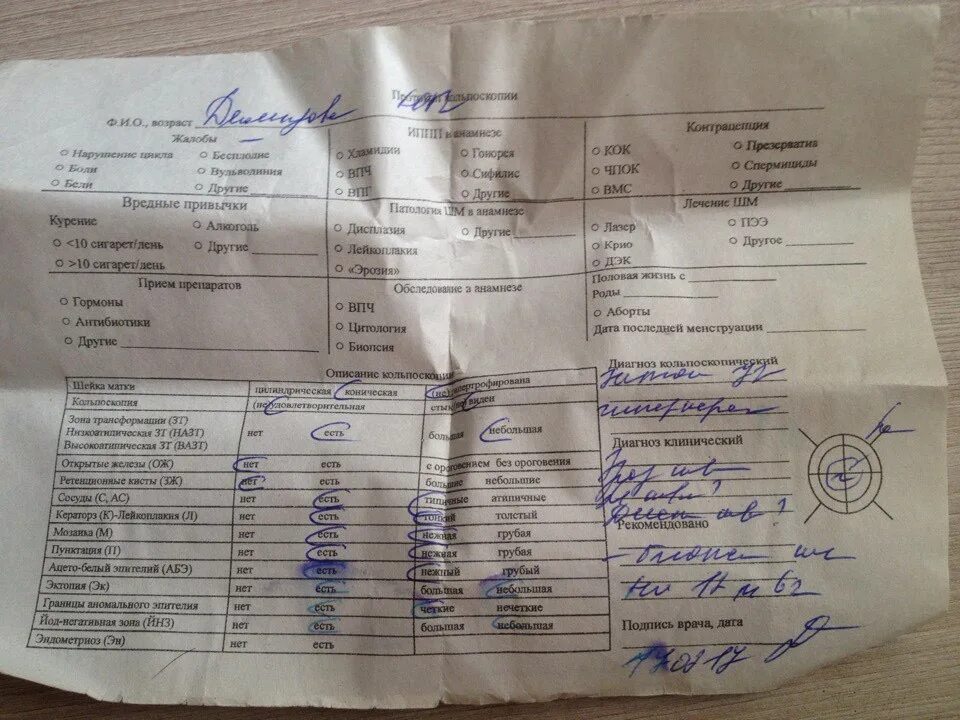 Протокол кольпоскопии
Ф.И.О., возраст
Жалобы
○ Нарушение цикла ○ Бесплодие
○ Боли ○ Вульводиния
○ Бели ○ Другие
ИППП в анамнезе
○ Хламидии ○ Гонорея
○ ВПЧ ○ Сифилис
○ ВПГ ○ Другие
Контрацепция
○ КОК ○ Презерватив
○ ЧПОК ○ Спермициды
○ ВМС ○ Другие
Вредные привычки
Курение ○ Алкоголь
○ <10 сигарет/день ○ Другие
○ >10 сигарет/день
Патология ШМ в анамнезе
○ Дисплазия ○ Другие
○ Лейкоплакия
○ «Эрозия»
Лечение ШМ
○ Лазер ○ ПЭЭ
○ Крио ○ Другое
○ ДЭК
Прием препаратов
○ Гормоны
○ Антибиотики
○ Другие
Обследование в анамнезе
○ ВПЧ
○ Цитология
○ Биопсия
Половая жизнь с
Роды
○ Аборты
Дата последней менструации
Описание кольпоскопии
Шейка матки цилиндрическая коническая (не)гипертрофирована
Кольпоскопия (не)удовлетворительная стык (не) виден
Зона трансформации (ЗТ)
Низкоатипическая ЗТ (НАЗТ) нет есть большая небольшая
Высокоатипическая ЗТ (ВАЗТ)
Открытые железы (ОЖ) нет есть с ороговением без ороговения
Ретенционные кисты (ЗЖ) нет есть большие небольшие
Сосуды (С, АС) нет есть типичные атипичные
Кератоз (К)-Лейкоплакия (Л) нет есть тонкий толстый
Мозаика (М) нет есть нежная грубая
Пунктация (П) нет есть нежная грубая
Ацето-белый эпителий (АБЭ) нет есть нежный грубый
Эктопия (Эк) нет есть большая небольшая
Границы аномального эпителия нет есть четкие нечеткие
Йод-негативная зона (ЙНЗ) нет есть большая небольшая
Эндометриоз (Эн) нет есть
Диагноз кольпоскопический
Диагноз клинический
Рекомендовано
Подпись врача, дата
170217